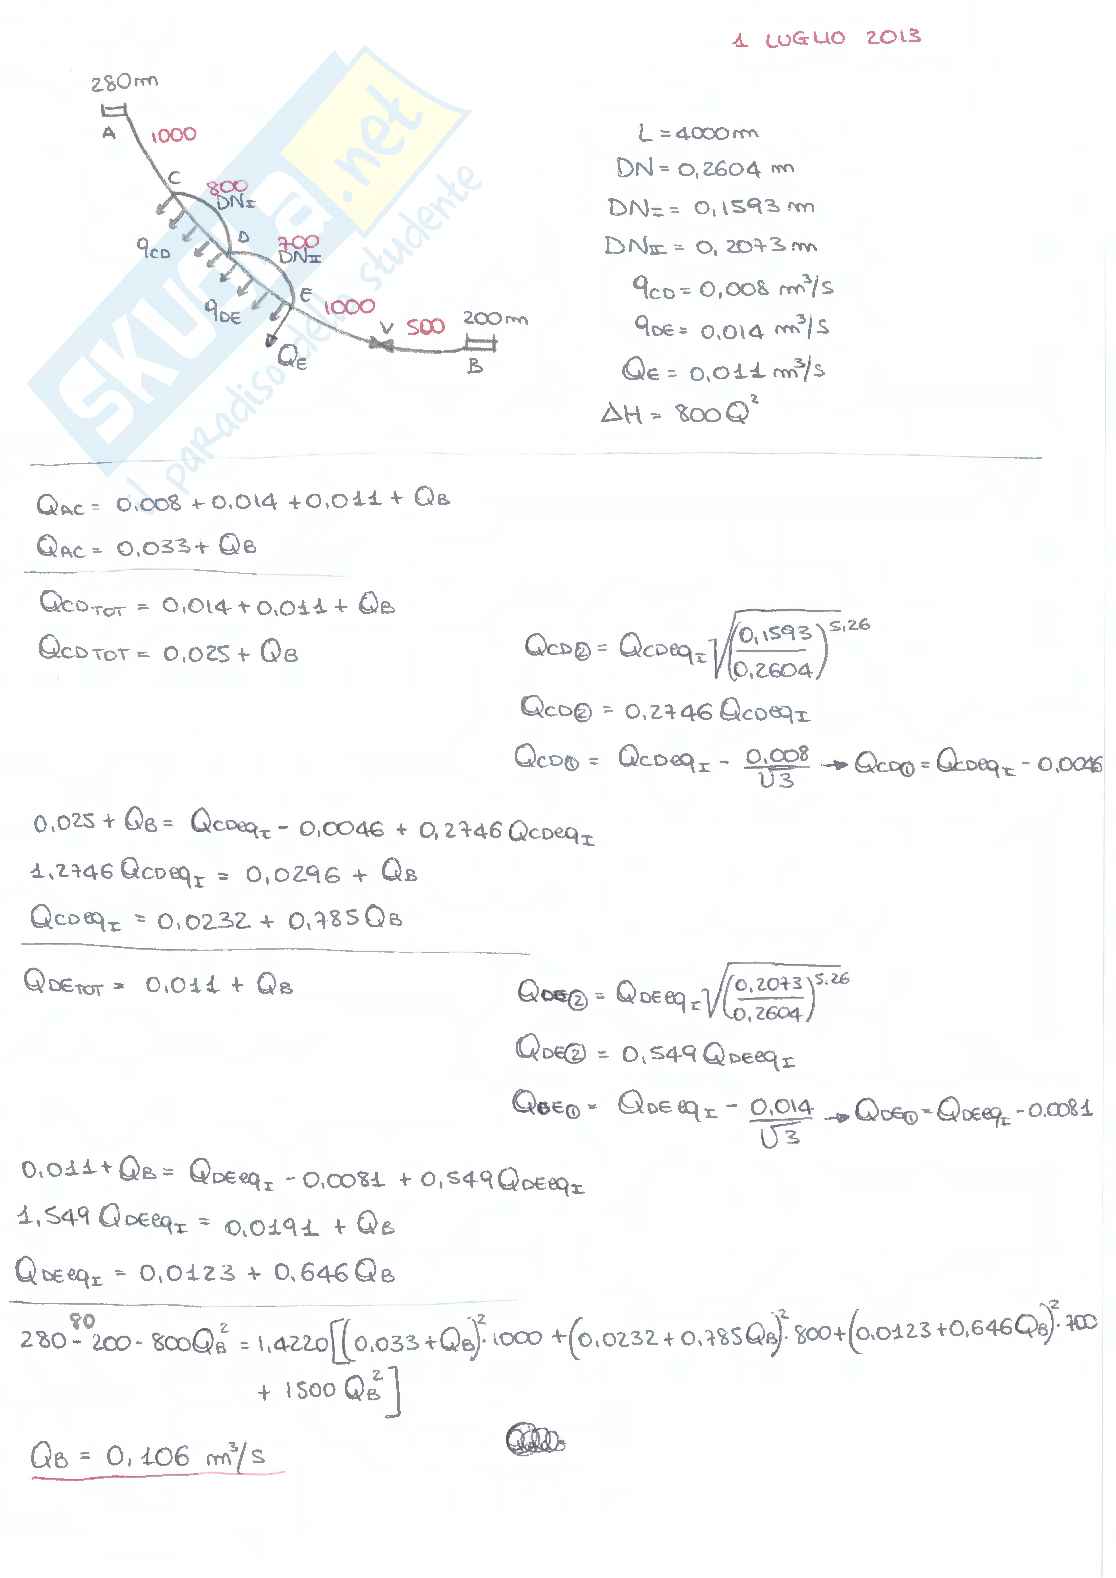 1 LUGLIO 2013
280m
A
1000
C
800
DN_I
q_CD
D
700
DN_II
q_DE
E
1000
V
500
200m
B
Q_E
SKUOLA.net
il paradiso dello studente
L = 4000 m
DN = 0,2604 m
DN_I = 0,1593 m
DN_II = 0,2073 m
q_CD = 0,008 m³/s
q_DE = 0,014 m³/s
Q_E = 0,011 m³/s
ΔH = 800Q²
Q_AC = 0.008 + 0,014 + 0,011 + Q_B
Q_AC = 0,033 + Q_B
Q_CD TOT = 0,014 + 0,011 + Q_B
Q_CD TOT = 0,025 + Q_B
Q_CD② = Q_CDeq_I √(0,1593/0,2604)^5,26
Q_CD② = 0,2746 Q_CDeq_I
Q_CD① = Q_CDeq_I - 0,008/√3 → Q_CD① = Q_CDeq_I - 0,0046
0,025 + Q_B = Q_CDeq_I - 0,0046 + 0,2746 Q_CDeq_I
1,2746 Q_CDeq_I = 0,0296 + Q_B
Q_CDeq_I = 0,0232 + 0,785 Q_B
Q_DE TOT = 0,011 + Q_B
Q_DE② = Q_DEeq_I √(0,2073/0,2604)^5.26
Q_DE② = 0,549 Q_DEeq_I
Q_DE① = Q_DEeq_I - 0,014/√3 → Q_DE① = Q_DEeq_I - 0.0081
0,011 + Q_B = Q_DEeq_I - 0,0081 + 0,549 Q_DEeq_I
1,549 Q_DEeq_I = 0,0191 + Q_B
Q_DEeq_I = 0,0123 + 0,646 Q_B
80
280 - 200 - 800Q_B² = 1,4220[(0,033 + Q_B)²·1000 + (0,0232 + 0,785Q_B)²·800 + (0,0123 + 0,646Q_B)²·700
+ 1500 Q_B²]
Q_B = 0,106 m³/s